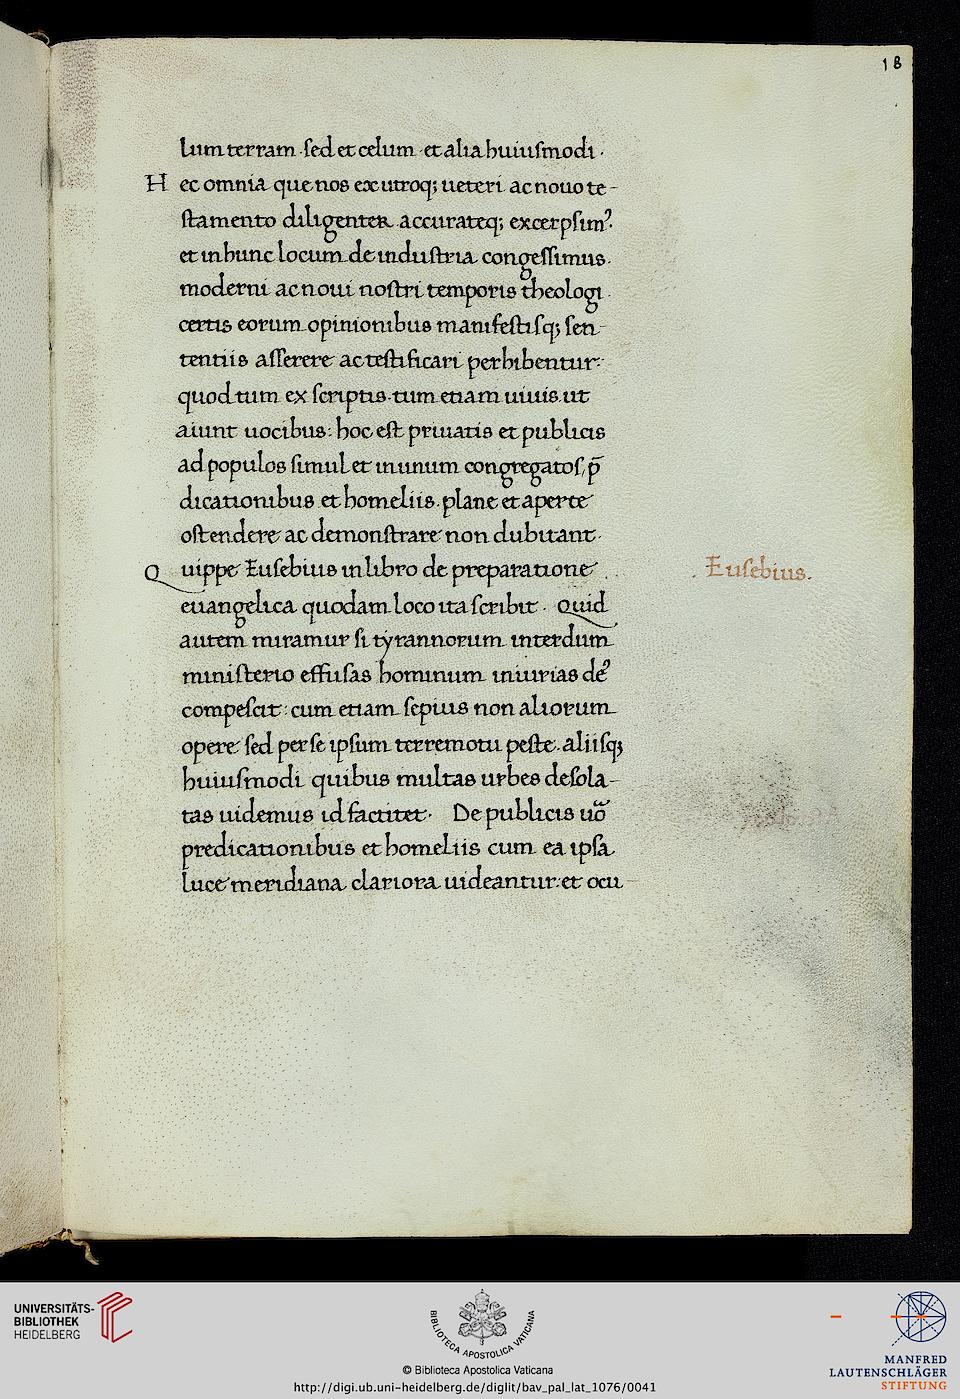 18
lum terram · sed et celum · et alia huiusmodi ·
Hec omnia que nos ex utroq; ueteri ac nouo te-
stamento diligenter accurateq; excerpsim᾿.
et in hunc locum de industria congessimus.
moderni ac noui nostri temporis theologi.
certis eorum opinionibus manifestisq; sen-
tentiis asserere ac testificari perhibentur:
quod tum ex scriptis. tum etiam uiuis ut
aiunt uocibus: hoc est priuatis et publicis
ad populos simul et in unum congregatos, p̄
dicationibus et homeliis. plane et aperte
ostendere ac demonstrare non dubitant.
Quippe Eusebius in libro de preparatione
Eusebius.
euangelica quodam loco ita scribit. Quid
autem miramur si tyrannorum interdum
ministerio effusas hominum iniurias de᾿
compescit: cum etiam sepius non aliorum
opere sed per se ipsum terremotu peste. aliisq;
huiusmodi quibus multas urbes desola-
tas uidemus id factitet. De publicis uoᷓ
predicationibus et homeliis cum ea ipsa
luce meridiana clariora uideantur: et ocu
UNIVERSITÄTS-
BIBLIOTHEK
HEIDELBERG
BIBLIOTECA APOSTOLICA VATICANA
© Biblioteca Apostolica Vaticana
http://digi.ub.uni-heidelberg.de/diglit/bav_pal_lat_1076/0041
MANFRED
LAUTENSCHLÄGER
STIFTUNG